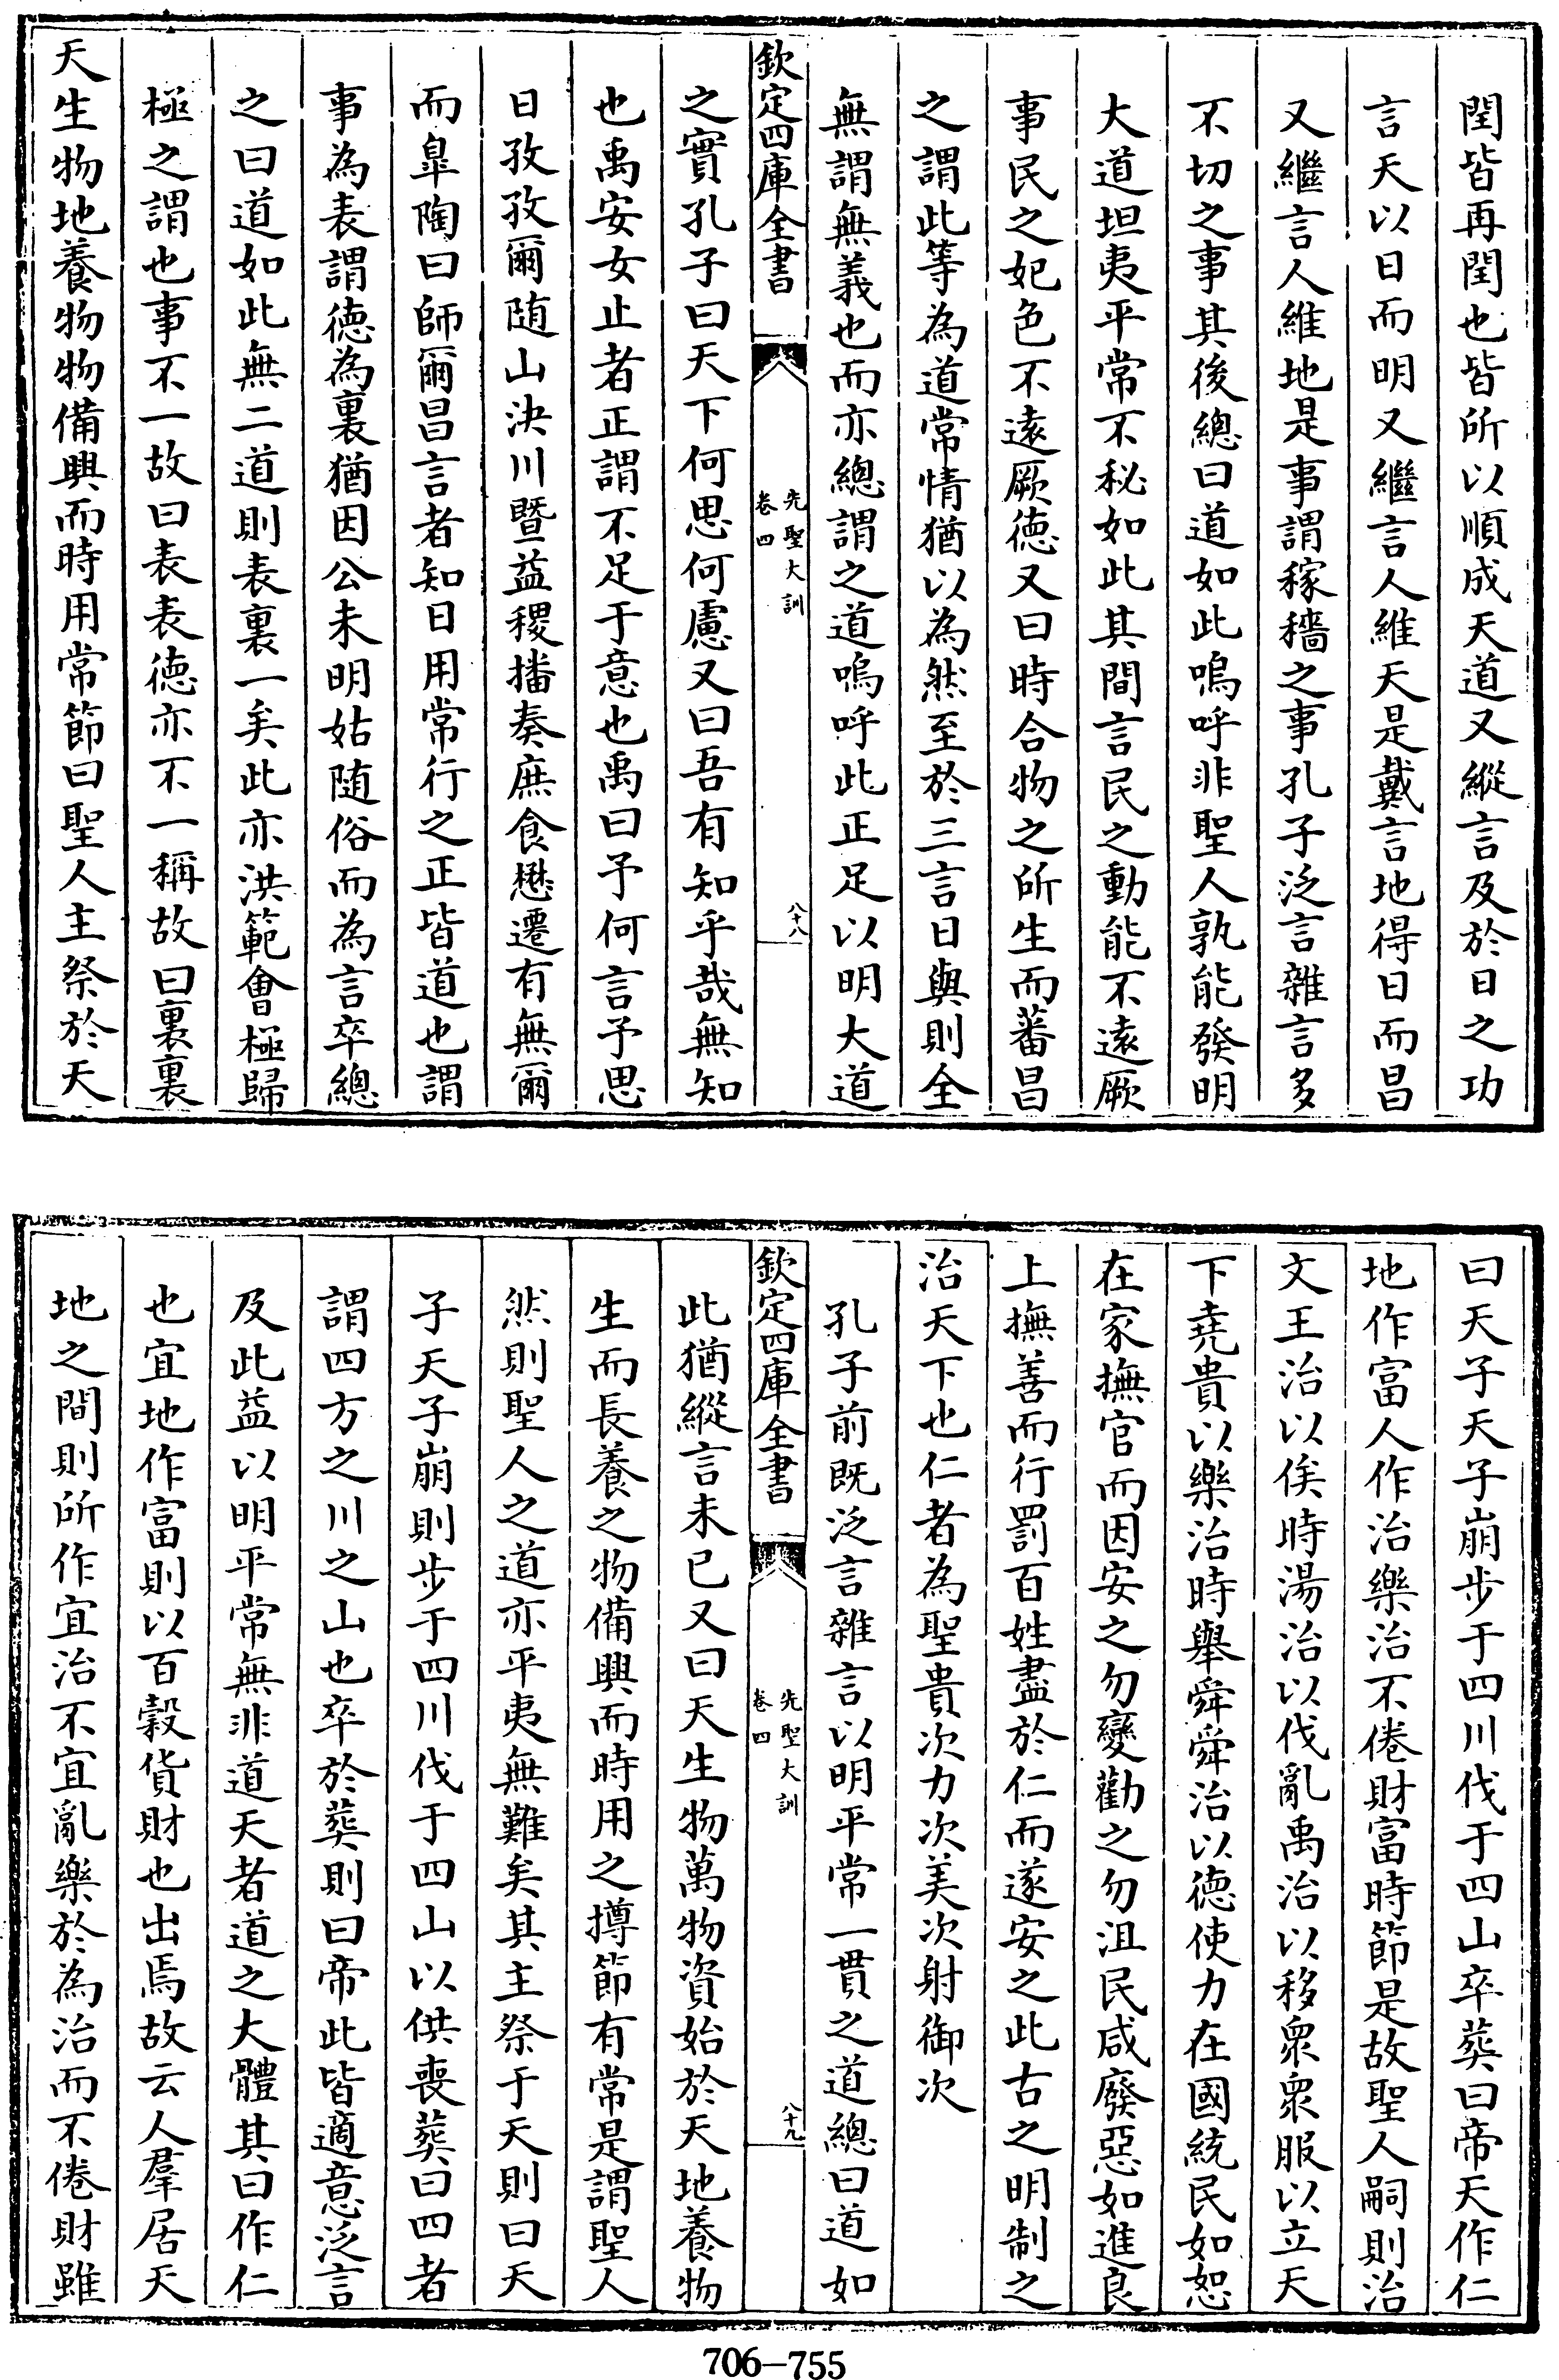 閏皆再閏也皆所以順成天道又縱言及於日之功
言天以日而明又繼言人維天是戴言地得日而昌
又繼言人維地是事謂稼穡之事孔子泛言雜言多
不切之事其後總曰道如此嗚呼非聖人孰能發明
大道坦夷平常不秘如此其間言民之動能不遠厥
事民之妃色不遠厥德又曰時合物之所生而蕃昌
之謂此等為道常情猶以為然至於三言日與則全
無謂無義也而亦總謂之道嗚呼此正足以明大道
欽定四庫全書
先聖大訓
卷四
八十八
之實孔子曰天下何思何慮又曰吾有知乎哉無知
也禹安女止者正謂不足于意也禹曰予何言予思
日孜孜爾随山決川暨益稷播奏庶食懋遷有無爾
而臯陶曰師爾昌言者知日用常行之正皆道也謂
事為表謂德為裏猶因公未明姑随俗而為言卒總
之曰道如此無二道則表裏一矣此亦洪範會極歸
極之謂也事不一故曰表表德亦不一稱故曰裏裏
天生物地養物物備興而時用常節曰聖人主祭於天
曰天子天子崩步于四川伐于四山卒葬曰帝天作仁
地作富人作治樂治不倦財富時節是故聖人嗣則治
文王治以俟時湯治以伐亂禹治以移衆衆服以立天
下堯貴以樂治時舉舜舜治以德使力在國統民如恕
在家撫官而因安之勿變勸之勿沮民咸廢惡如進良
上撫善而行罰百姓盡於仁而遂安之此古之明制之
治天下也仁者為聖貴次力次美次射御次
孔子前既泛言雜言以明平常一貫之道總曰道如
欽定四庫全書
先聖大訓
卷四
八十九
此猶縱言未已又曰天生物萬物資始於天地養物
生而長養之物備興而時用之撙節有常是謂聖人
然則聖人之道亦平夷無難矣其主祭于天則曰天
子天子崩則步于四川伐于四山以供喪葬曰四者
謂四方之川之山也卒於葬則曰帝此皆適意泛言
及此益以明平常無非道天者道之大體其曰作仁
也宜地作富則以百穀貨財也出焉故云人羣居天
地之間則所作宜治不宜亂樂於為治而不倦財雖
706-755